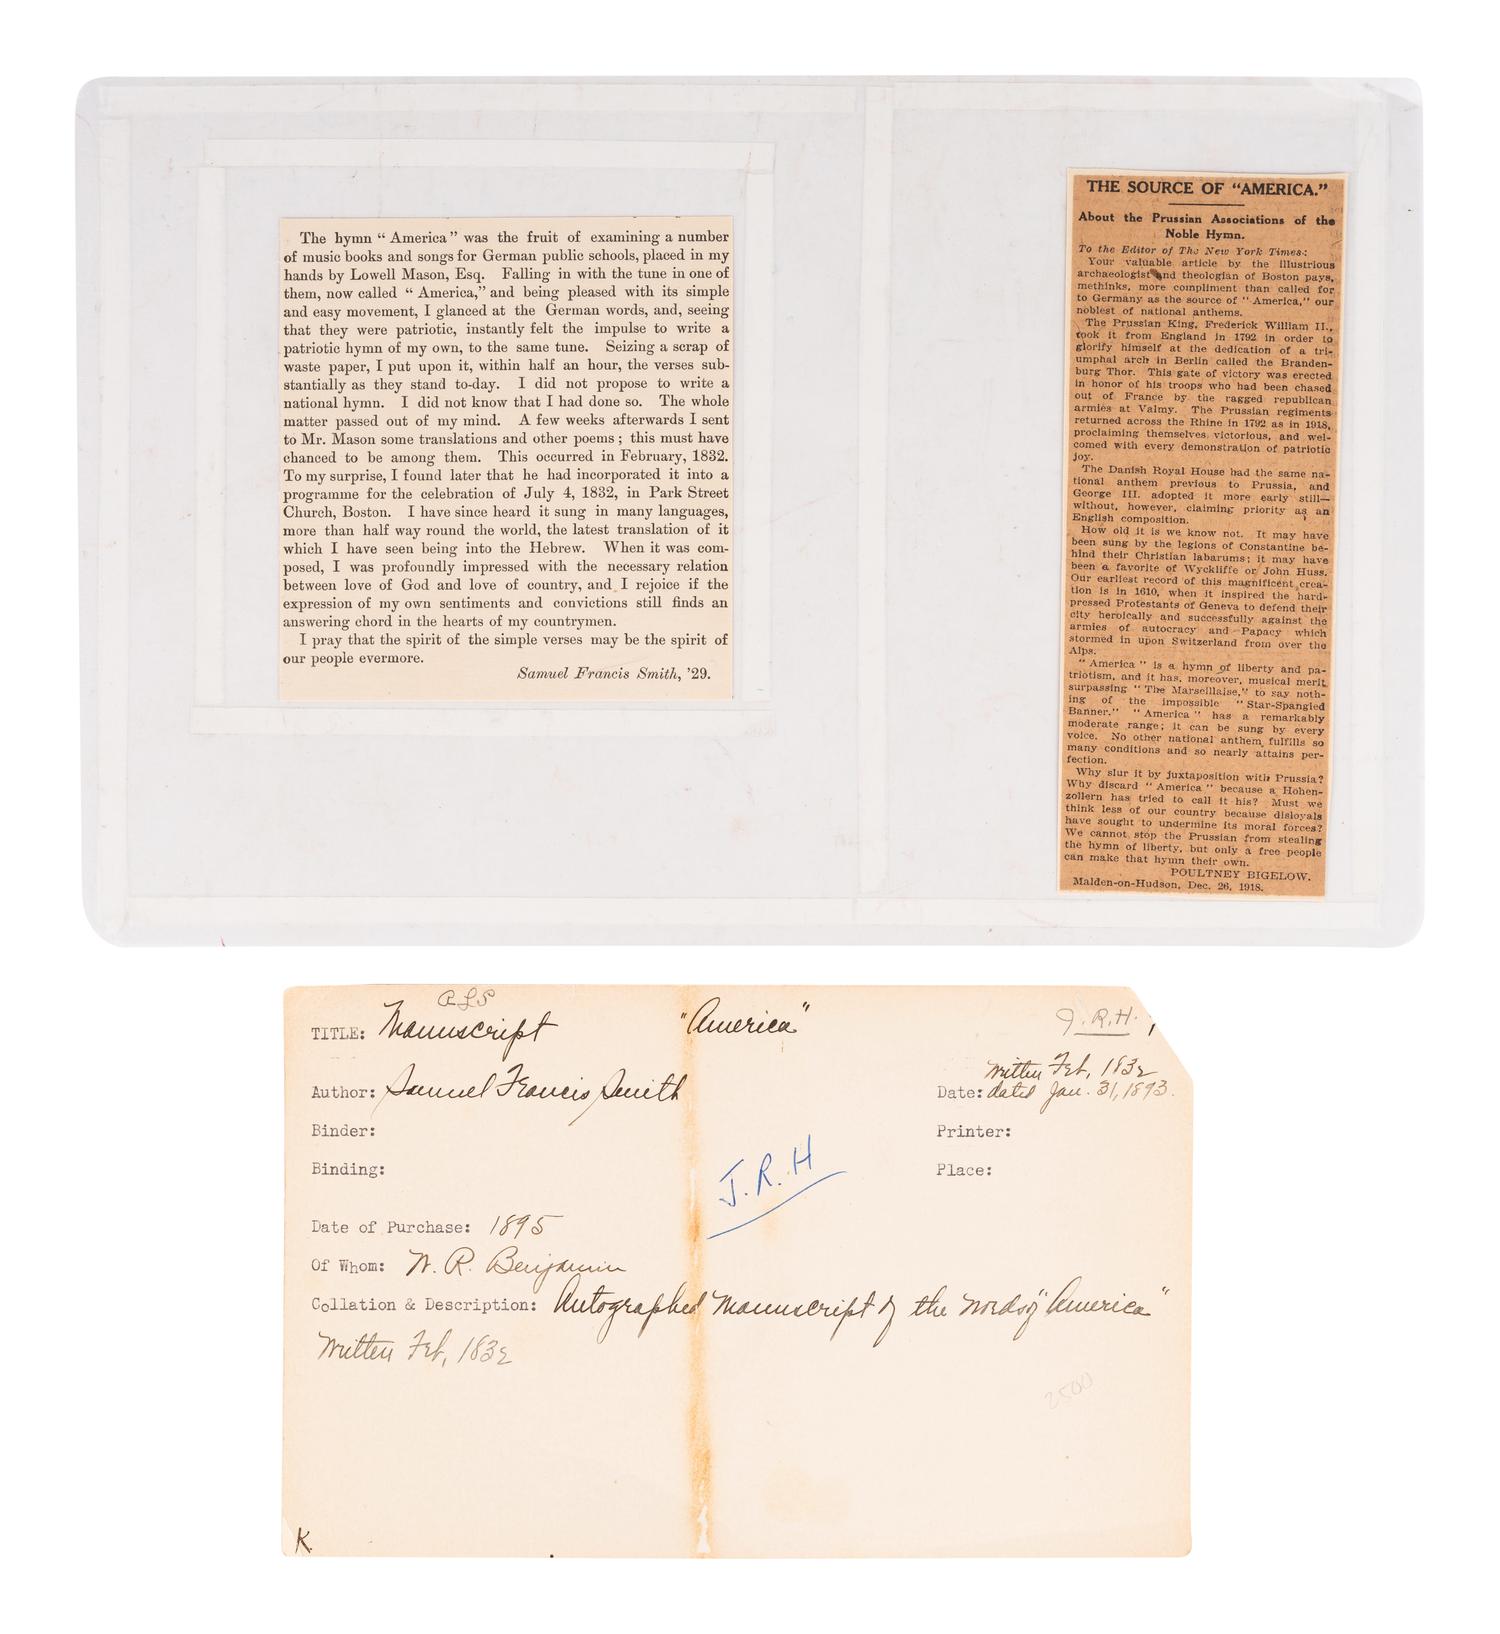 The hymn “ America ” was the fruit of examining a number
of music books and songs for German public schools, placed in my
hands by Lowell Mason, Esq. Falling in with the tune in one of
them, now called “ America,” and being pleased with its simple
and easy movement, I glanced at the German words, and, seeing
that they were patriotic, instantly felt the impulse to write a
patriotic hymn of my own, to the same tune. Seizing a scrap of
waste paper, I put upon it, within half an hour, the verses sub-
stantially as they stand to-day. I did not propose to write a
national hymn. I did not know that I had done so. The whole
matter passed out of my mind. A few weeks afterwards I sent
to Mr. Mason some translations and other poems ; this must have
chanced to be among them. This occurred in February, 1832.
To my surprise, I found later that he had incorporated it into a
programme for the celebration of July 4, 1832, in Park Street
Church, Boston. I have since heard it sung in many languages,
more than half way round the world, the latest translation of it
which I have seen being into the Hebrew. When it was com-
posed, I was profoundly impressed with the necessary relation
between love of God and love of country, and I rejoice if the
expression of my own sentiments and convictions still finds an
answering chord in the hearts of my countrymen.
I pray that the spirit of the simple verses may be the spirit of
our people evermore.
Samuel Francis Smith, ’29.
THE SOURCE OF “AMERICA.”
About the Prussian Associations of the
Noble Hymn.
To the Editor of The New York Times:
Your valuable article by the illustrious
archaeologist and theologian of Boston pays,
methinks, more compliment than called for
to Germany as the source of “America,” our
noblest of national anthems.
The Prussian King, Frederick William II.,
took it from England in 1792 in order to
glorify himself at the dedication of a tri-
umphal arch in Berlin called the Branden-
burg Thor. This gate of victory was erected
in honor of his troops who had been chased
out of France by the ragged republican
armies at Valmy. The Prussian regiments
returned across the Rhine in 1792 as in 1918,
proclaiming themselves victorious, and wel-
comed with every demonstration of patriotic
joy.
The Danish Royal House had the same na-
tional anthem previous to Prussia, and
George III. adopted it more early still—
without, however, claiming priority as an
English composition.
How old it is we know not. It may have
been sung by the legions of Constantine be-
hind their Christian labarums; it may have
been a favorite of Wyckliffe or John Huss.
Our earliest record of this magnificent crea-
tion is in 1610, when it inspired the hard-
pressed Protestants of Geneva to defend their
city heroically and successfully against the
armies of autocracy and Papacy which
stormed in upon Switzerland from over the
Alps.
“America” is a hymn of liberty and pa-
triotism, and it has, moreover, musical merit
surpassing “The Marseillaise,” to say noth-
ing of the impossible “Star-Spangled
Banner.” “America” has a remarkably
moderate range; it can be sung by every
voice. No other national anthem fulfills so
many conditions and so nearly attains per-
fection.
Why slur it by juxtaposition with Prussia?
Why discard “America” because a Hohen-
zollern has tried to call it his? Must we
think less of our country because disloyals
have sought to undermine its moral forces?
We cannot stop the Prussian from stealing
the hymn of liberty, but only a free people
can make that hymn their own.
POULTNEY BIGELOW.
Malden-on-Hudson, Dec. 26, 1918.
ALS
TITLE: Manuscript "America" J.R.H.
written Feb, 1832
Author: Samuel Francis Smith Date: dated Jan. 31, 1893.
Binder: Printer:
Binding: Place:
J.R.H
Date of Purchase: 1895
Of Whom: W. R. Benjamin
Collation & Description: Autographed Manuscript of the words of "America"
written Feb, 1832
2500
K.